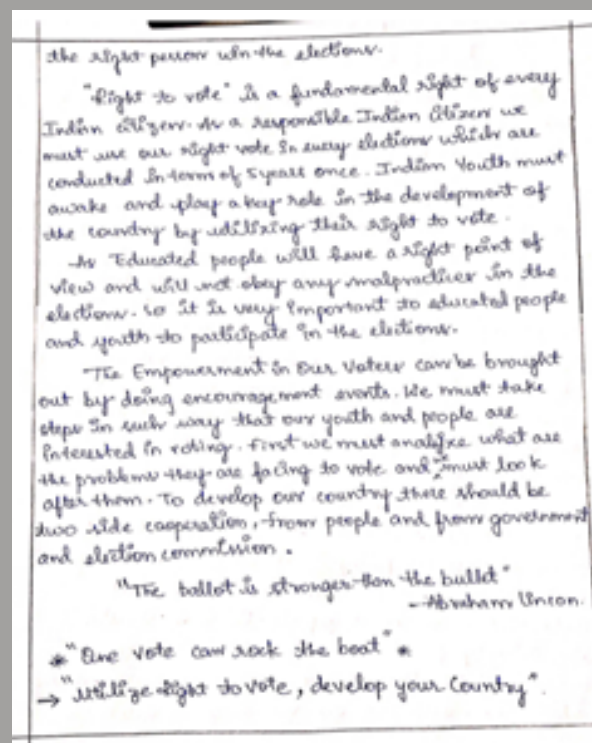 the right person win the elections.
"Right to vote" is a fundamental right of every
Indian citizen. As a responsible Indian Citizen we
must use our right vote in every elections which are
conducted in term of 5 years once. Indian Youth must
awake and play a key role in the development of
the country by utilizing their right to vote.
As Educated people will have a right point of
view and will not obey any malpractices in the
elections. so it is very important to educated people
and youth to participate in the elections.
"The Empowerment in Our Voters can be brought
out by doing encouragement events. We must take
steps in such way that our youth and people are
interested in voting. First we must analyze what are
the problems they are facing to vote and must look
after them. To develop our country there should be
two side cooperation, from people and from government
and election commission.
"The ballot is stronger than the bullet"
- Abraham Lincon.
* "One vote can rock the boat" *
→ "Utilize Right to vote, develop your Country".